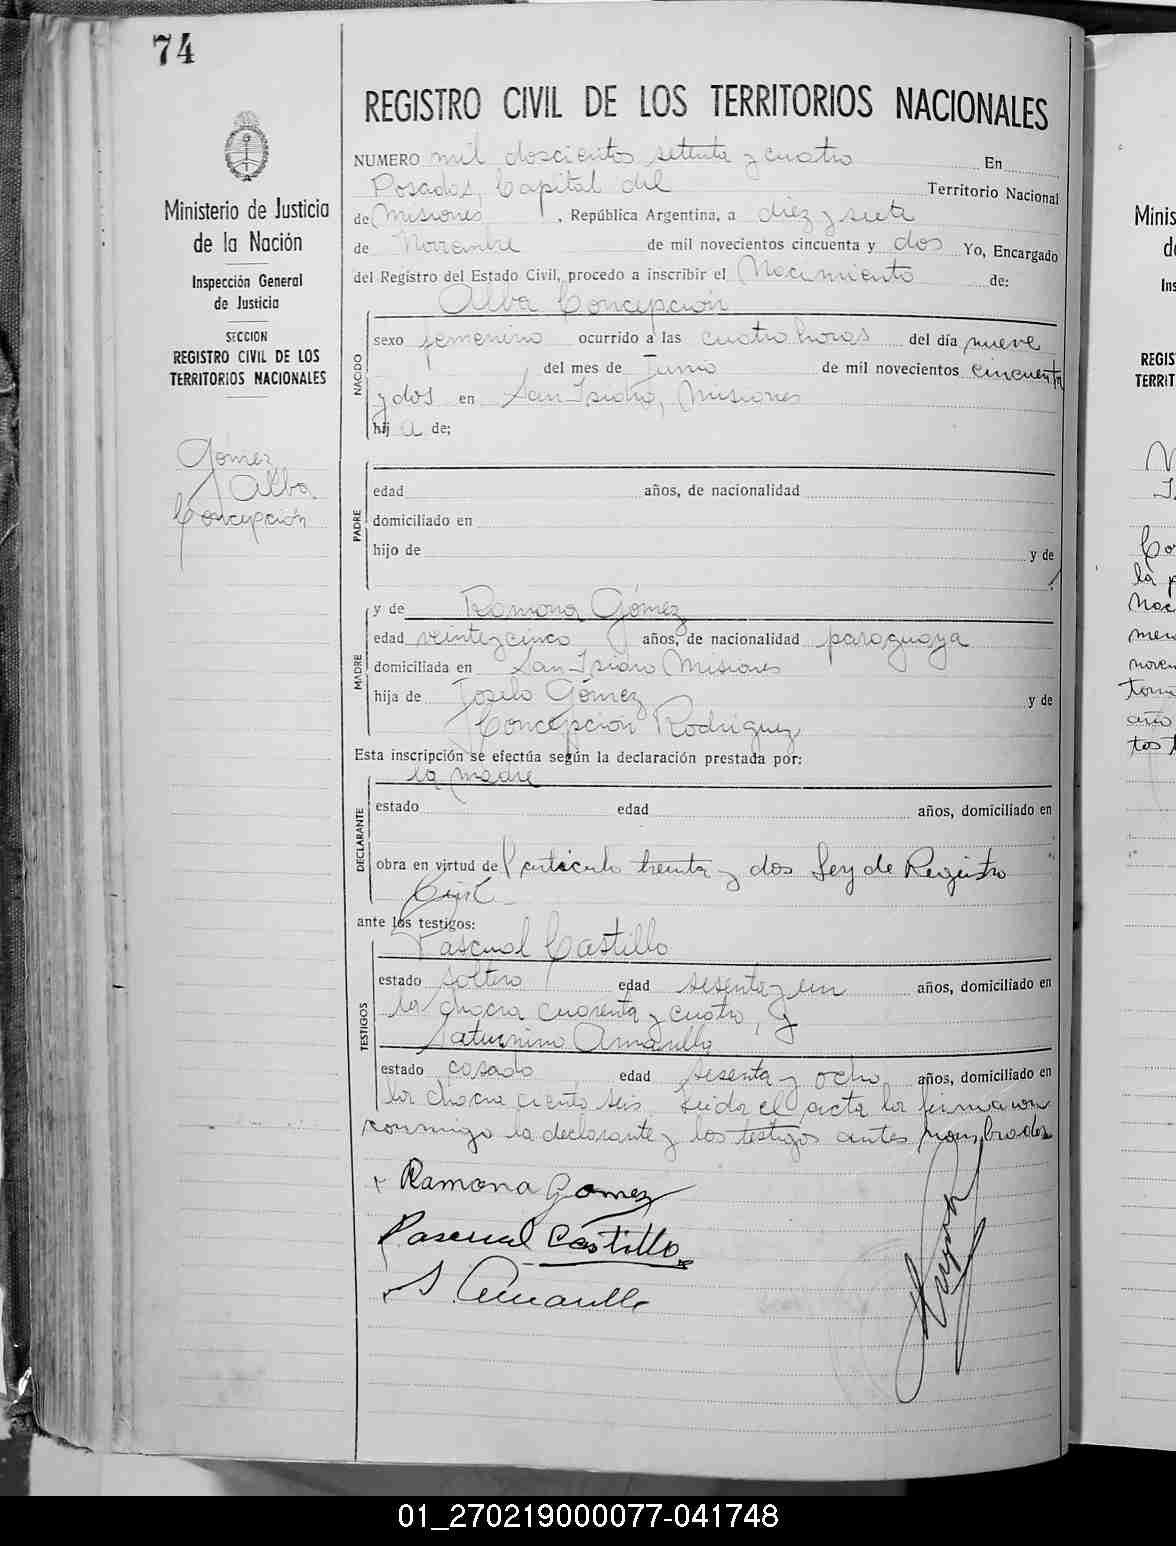 74
REGISTRO CIVIL DE LOS TERRITORIOS NACIONALES
Ministerio de Justicia
de la Nación
Inspección General
de Justicia
SECCION
REGISTRO CIVIL DE LOS
TERRITORIOS NACIONALES
Gómez
Alba
Concepción
NUMERO mil doscientos setenta y cuatro En
Posadas, Capital del Territorio Nacional
de Misiones, República Argentina, a diez y siete
de Noviembre de mil novecientos cincuenta y dos Yo, Encargado
del Registro del Estado Civil, procedo a inscribir el Nacimiento de:
Alba Concepción
NACIDO
sexo femenino ocurrido a las cuatro horas del día nueve
del mes de Junio de mil novecientos cincuenta
y dos en San Isidro, Misiones
hija de;
PADRE
edad años, de nacionalidad
domiciliado en
hijo de y de
MADRE
y de Ramona Gómez
edad veinte y cinco años, de nacionalidad paraguaya
domiciliada en San Isidro Misiones
hija de Gómez y de
Concepción Rodríguez
Esta inscripción se efectúa según la declaración prestada por:
la madre
DECLARANTE
estado edad años, domiciliado en
obra en virtud del artículo treinta y dos Ley de Registro
Civil
ante los testigos:
Pascual Castillo
TESTIGOS
estado soltero edad sesenta y un años, domiciliado en
la chacra cuarenta y cuatro, y
Saturnino Amarilla
estado casado edad sesenta y ocho años, domiciliado en
la chacra ciento seis. Leída el acta la firmaron
conmigo la declarante y los testigos antes nombrados
Ramona Gomez
Pascual Castillo
S. Amarilla
Minis
de
Ins
REGIS
TERRIT
01_270219000077-041748